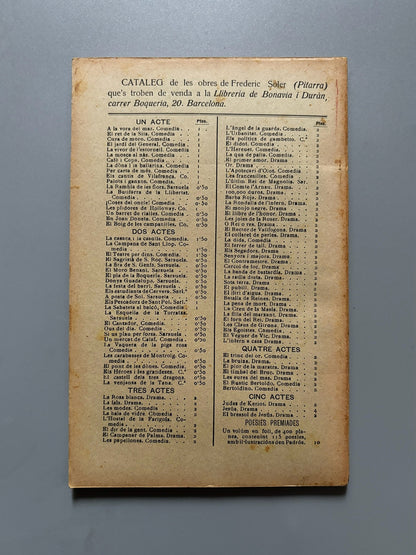 CATALEG de les obres de Frederic Soler (Pitarra)
que's troben de venda a la Llibreria de Bonavia i Durán,
carrer Boqueria, 20. Barcelona.
UN ACTE Ptes.
A la vora del mar. Comedia . 1
El ret de la Sila. Comedia . 1
Cura de moro. Comedia . 1
El jardí del General. Comedia . 1
La vivor de l'estornell. Comedia . 1
La mosca al nas. Comedia . 1
Café i Copa. Comedia . 1
La dóna i la ballarina. Comedia . 1
Per carta de més. Comedia . 1
Els cantis de Vilafranca. Co.
Palots i ganxos. Comedia . 1
La Rambla de les flors. Sarsuela . 0'50
La Butifarra de la Llibertat.
Comedia . 0'50
¡Coses del oncle! Comedia . 0'50
Les píldores de Holloway. Co. 0'50
Un barret de rialles. Comedia . 0'50
En Joan Doneta. Comedia . 0'50
El Boig de les campanilles. Co. 0'50
DOS ACTES
La casaca, i la casulla. Comedia . 1'50
La Campana de Sant Llop. Co-
media . 1'50
El Teatre per dins. Comedia . 0'50
El Sagristà de S. Roc. Sarsuela . 0'50
La fira de S. Genís. Sarsuela . 0'50
El Moro Benani. Sarsuela . 0'50
El pla de la Boqueria. Sarsuela . 0'50
Donya Guadalupe. Sarsuela . 0'50
La festa del barri. Sarsuela . 0'50
Els estudiants de Cervera. Sarl.ª 0'50
A posta de Sol. Sarsuela . 0'50
Els Pescadors de Sant Pol. Sarl.ª 1
La Sabateta al balcó. Comedia .
La Esquella de la Torratxa.
Sarsuela . 0'50
El Cantador. Comedia . 0'50
Ous del dia. Comedia . 0'50
Si us plau per força. Sarsuela . 0'50
Un mercat de Calaf. Comedia . 0'50
La Vaquera de la piga rosa.
Comedia . 0'50
Les carabesses de Montroig. Co-
media . 0'50
El punt de les dònes. Comedia . 0'50
Els Héroes i les grandeses. C.ª 0'50
El castell dels tres dragons. 0'50
La venjansa de la Tana. C.ª 0'50
TRES ACTES
La Rosa blanca. Drama . 2
La falç. Drama . 2
Les modes. Comedia . 2
La sala de vidre. Comedia . 2
L'Hostal de la Farigola. Co-
media . 2
El dir de la gent. Comedia . 2
El Campener de Palma. Drama. 2
Les papellones. Comedia . 2
L'àngel de la guarda. Comedia. 2
L'Urbanitat. Comedia . 2
Els politics de gambeto. C.ª 2
El didot. Comedia . 2
L'Hereuet. Comedia . 2
La que de palla. Comedia . 2
El primer amor. Drama . 2
Or. Drama . 2
L'Apotecari d'Olot. Comedia . 2
Les francesilles. Comedia . 2
L'últim Rei de Magnolia. Sar. 2
El Comte l'Arnau. Drama . 2
100,000 duros. Drama . 2
Barba Roja. Drama . 2
La Rondalla de l'infern. Drama. 2
El monjo negre. Drama . 2
El llibre de l'honor. Drama . 2
Les joies de la Roser. Drama . 2
O Rei o res. Drama . 2
El Rector de Vallfogona. Drama. 2
El collaret de perles. Drama . 2
La dida. Comedia . 2
El ferrer de tall. Drama . 2
Els Segadors. Drama . 2
Senyora i majora. Drama . 2
El Contramestre. Drama . 2
Cercol de foc. Drama . 2
La banda de bastardia. Drama. 2
La ratlla dreta. Drama . 2
Sota terra. Drama . 2
El pubill. Drama . 2
El dirt d'atzet. Drama . 2
Batalla de Reines. Drama . 2
La pena de mort. Drama . 2
La Creu de la Masia. Drama . 2
La filla del marxant. Drama . 2
El forn del Rei. Drama . 2
Les Claus de Girona. Drama . 2
Els Egoistes. Comedia . 2
El Veguer de Vic. Drama . 2
L'infern a casa. Drama . 2
QUATRE ACTES
El trinc del or. Comedia . 2
La bruixa. Drama . 2
El plor de la marastra. Drama . 2
El timbal del Bruc. Drama . 2
Les eures del mas. Drama . 2
El Rustic Bertoldo. Comedia . 2
Bertoldino. Comedia . 2
CINC ACTES
Judes de Keriot. Drama . 2
Jesús. Drama . 4
El bressol de Jesús. Drama . 2
POESIES PREMIADES
Un volúm en foli, de 400 pla-
nes, contenint 115 poesies,
amb ilustracións den Padrós. 10